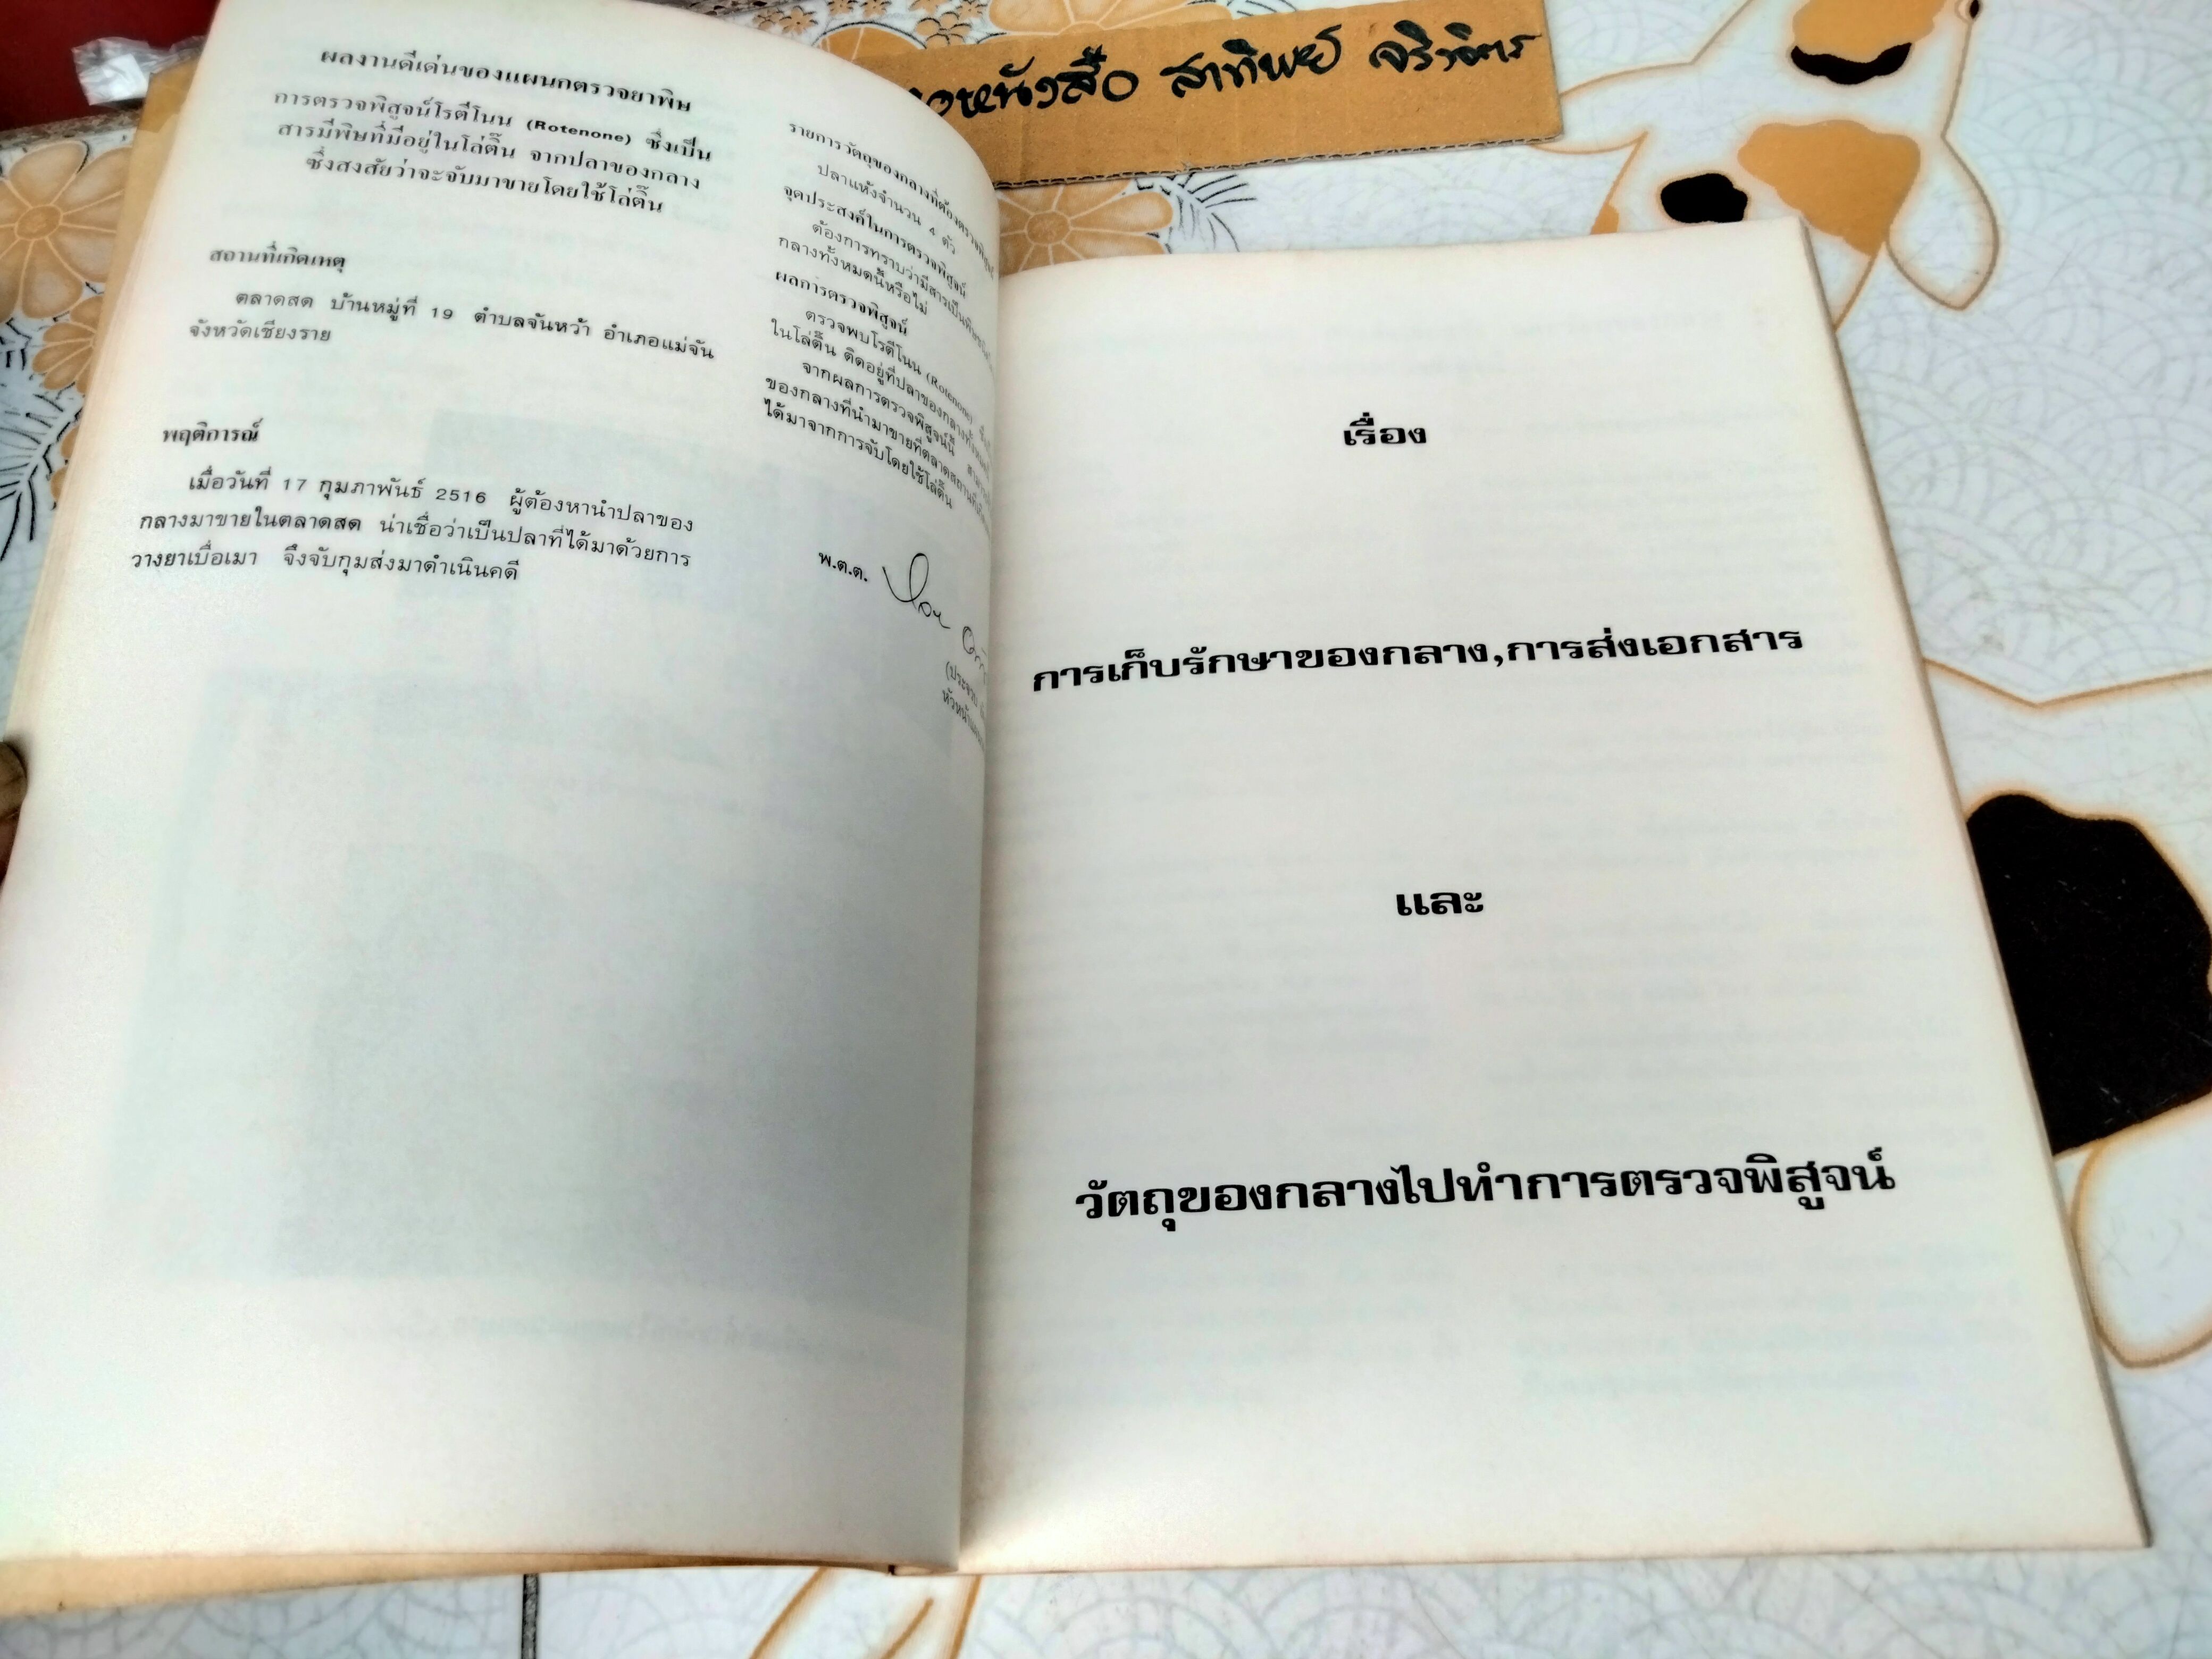 ผลงานดีเด่นของแผนกตรวจยาพิษ
การตรวจพิสูจน์โรตีโนน (Rotenone) ซึ่งเป็น
สารมีพิษที่มีอยู่ในโล่ติ๊น จากปลาของกลาง
ซึ่งสงสัยว่าจะจับมาขายโดยใช้โล่ติ๊น
สถานที่เกิดเหตุ
ตลาดสด บ้านหมู่ที่ 19 ตำบลจันหว้า อำเภอแม่จัน
จังหวัดเชียงราย
พฤติการณ์
เมื่อวันที่ 17 กุมภาพันธ์ 2516 ผู้ต้องหานำปลาของ
กลางมาขายในตลาดสด น่าเชื่อว่าเป็นปลาที่ได้มาด้วยการ
วางยาเบื่อเมา จึงจับกุมส่งมาดำเนินคดี
รายการวัตถุของกลางที่ต้องตรวจพิสูจน์
ปลาแห้งจำนวน 4 ตัว
จุดประสงค์ในการตรวจพิสูจน์
ต้องการทราบว่ามีสารเป็นพิษ
กลางทั้งหมดนี้หรือไม่
ผลการตรวจพิสูจน์
ตรวจพบโรตีโนน (Rotenone)
ในโล่ติ๊น ติดอยู่ที่ปลาของกลาง
จากผลการตรวจพิสูจน์นี้
ของกลางที่นำมาขายที่ตลาดสถานที่
ได้มาจากการจับโดยใช้โล่ติ๊น
พ.ต.ต.
(ประจวบ
หัวหน้า
หนังสือ สาทิพย์ จริงจิตร
เรื่อง
การเก็บรักษาของกลาง,การส่งเอกสาร
และ
วัตถุของกลางไปทำการตรวจพิสูจน์